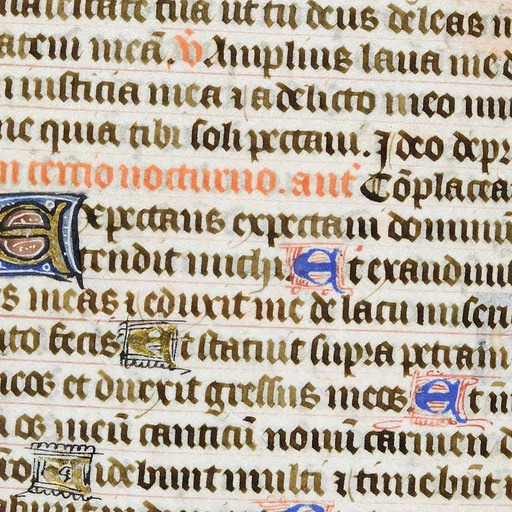 tua ut tu deus deleas
meā. v̄ Amplius laua me
iusticia mea ⁊ a delicto meo
quia tibi soli peccaui. Ideo
tercio nocturno. ant̄ Cōplacea
Expectans expectaui dominum
tendit michi Et exaudiuit
meas ⁊ eduxit me de lacu
fecit Et statuit supra petram
meos et direxit gressus meos Et
os meū canticū nouū carmen
Uidebunt multi ⁊ timebūt